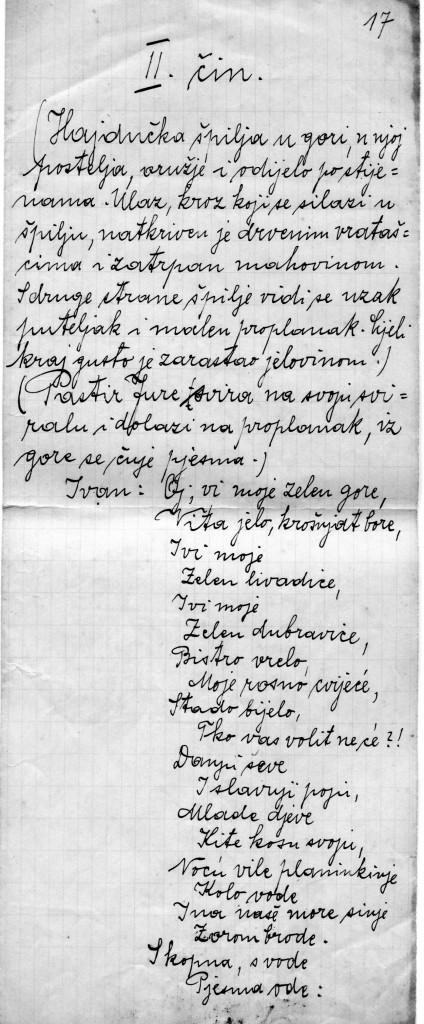 17
II. čin.
(Hajdučka špilja u gori, u njoj
postelja, oružje i odijelo po stije=
nama. Ulaz, kroz koji se silazi u
špilju, natkriven je drvenim vrataš=
cima i zatrpan mahovinom.
S druge strane špilje vidi se uzak
puteljak i malen proplanak. Cijeli
kraj gusto je zarastao jelovinom.)
(Pastir Jure svira na svoju svi=
ralu i dolazi na proplanak, iz
gore se čuje pjesma.)
Ivan: Oj, vi moje zelen gore,
Vita jelo, krošnjat bore,
I vi moje
Zelen livadice,
I vi moje
Zelen dubravice,
Bistro vrelo,
Moje rosno cvijeće,
Stado bijelo,
Tko vas volit neće?!
Danju ševe
I slavuji poju,
Mlade djeve
Kite kosu svoju,
Noću vile planinkinje
Kolo vode
I na naše more sinje
Zorom brode.
S kopna, s vode
Pjesma ode: